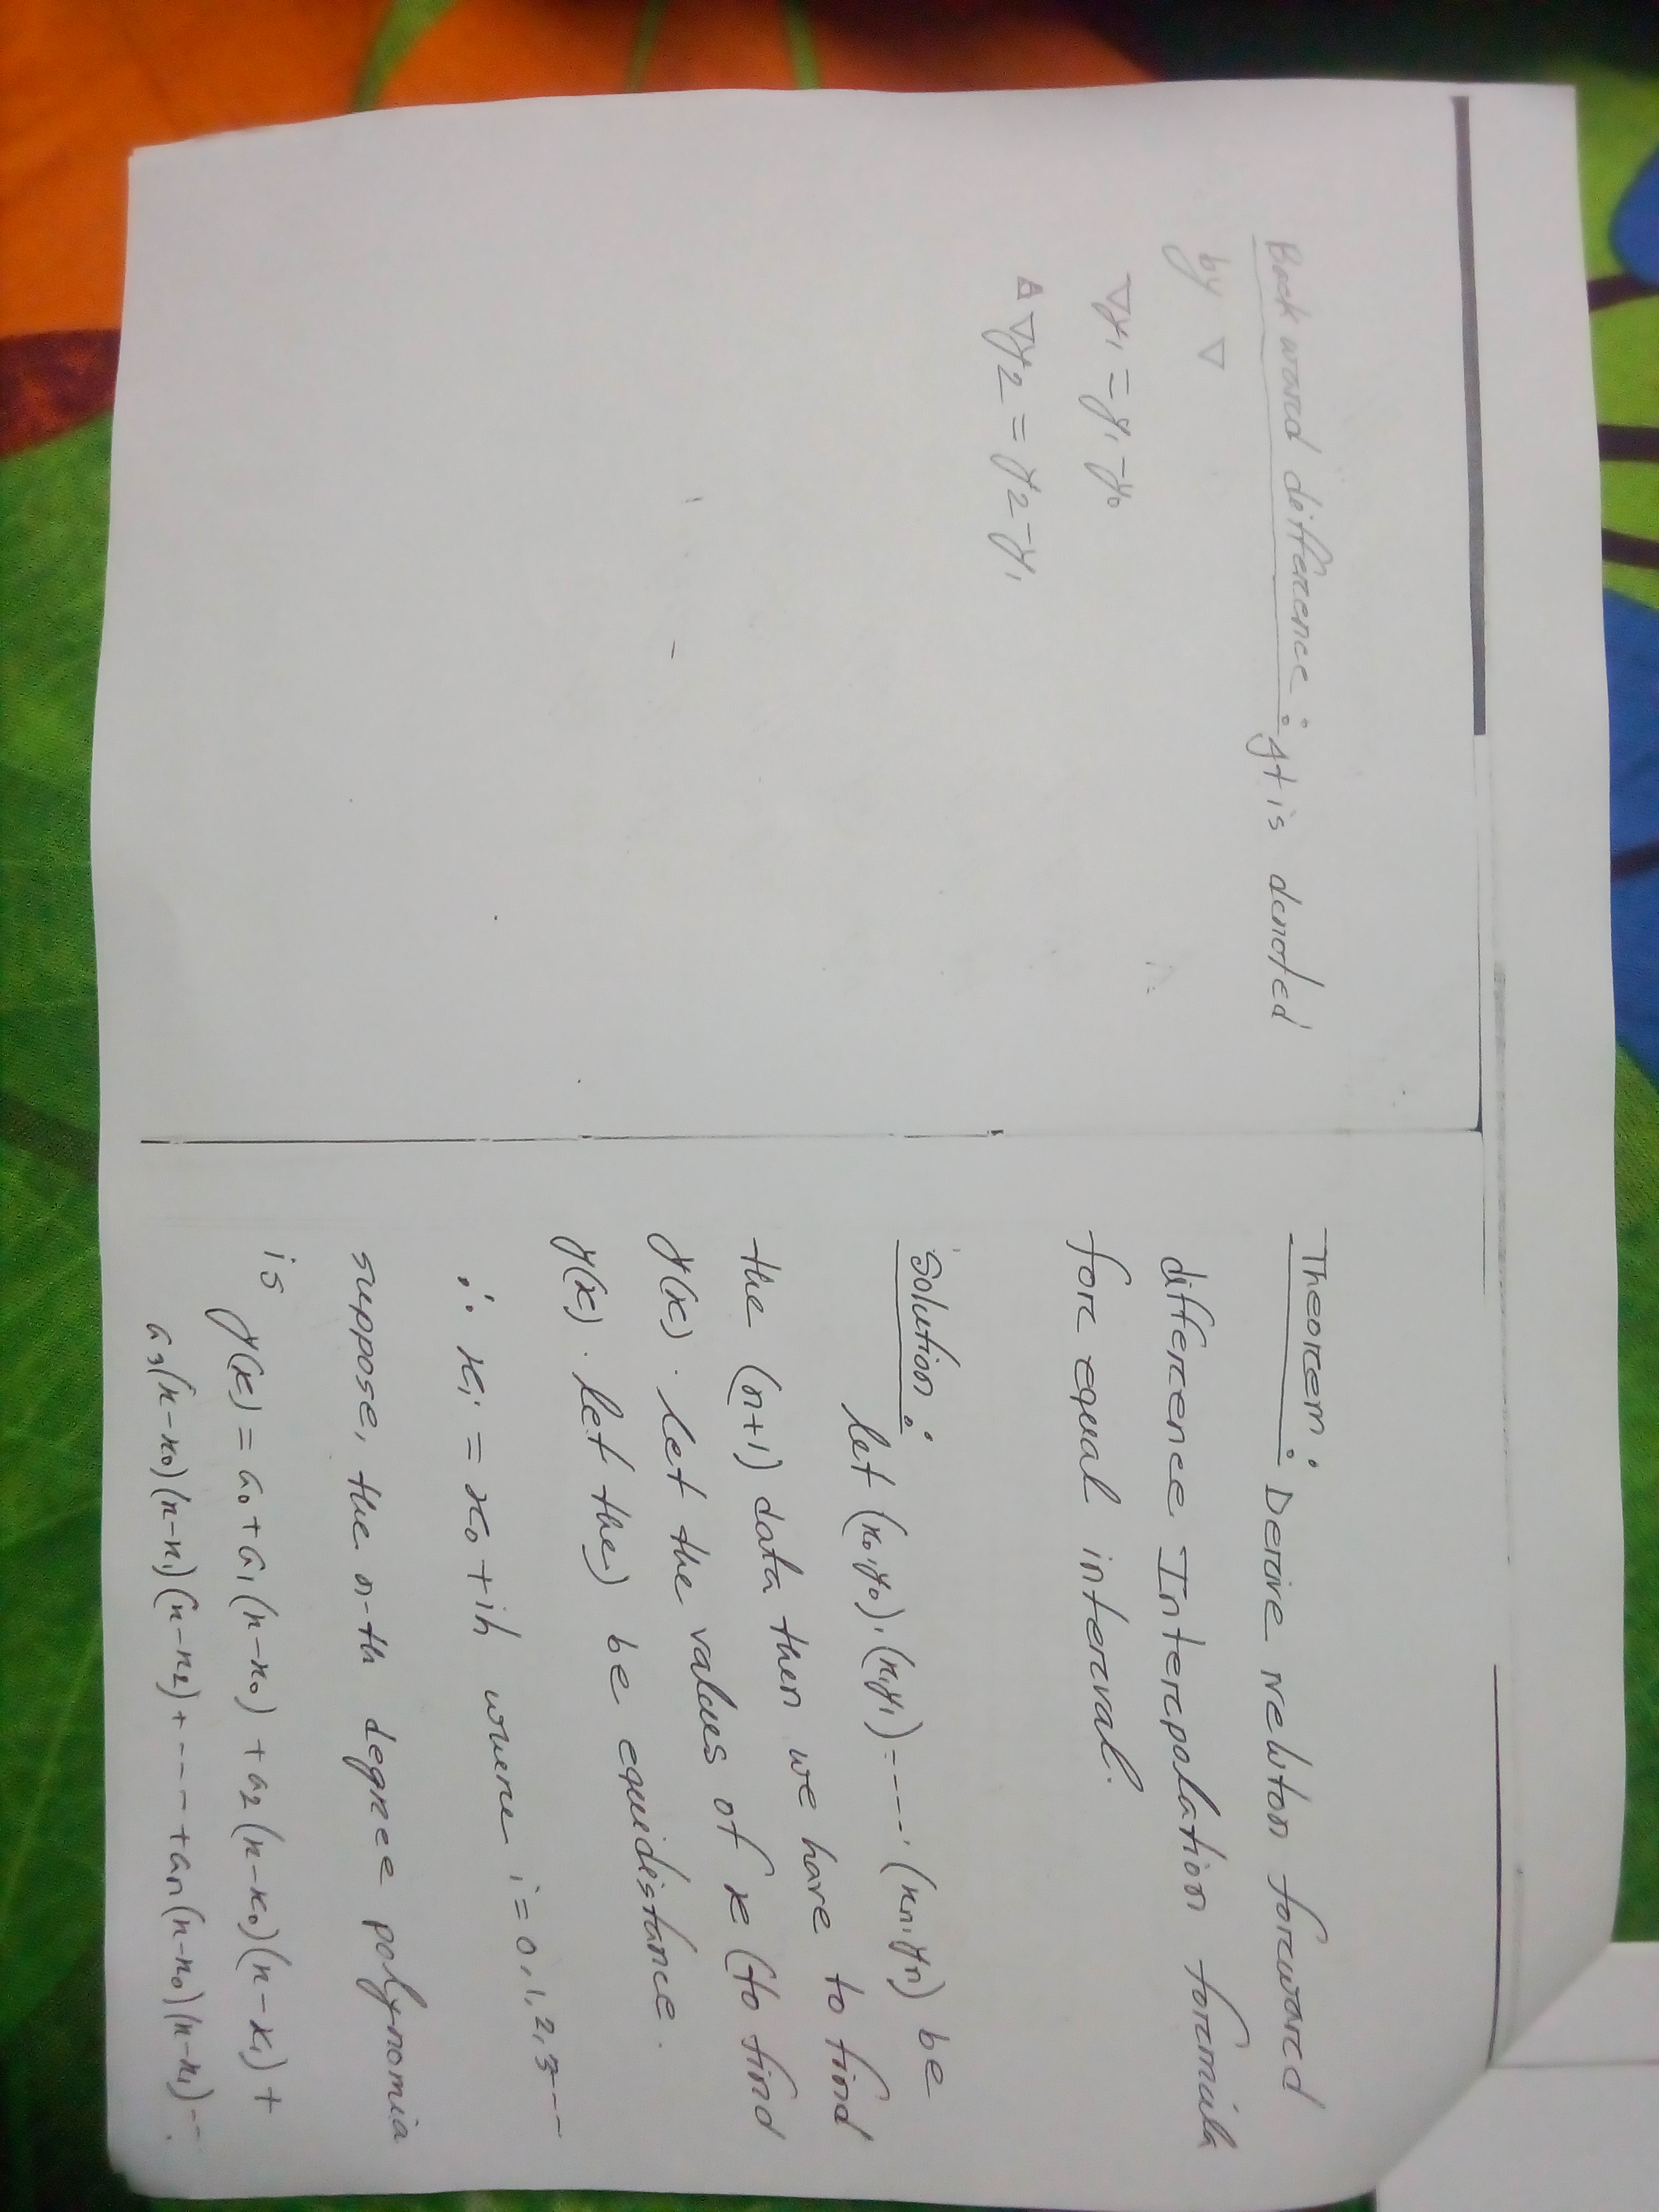 Backward difference: It is denoted
by ∇
∇y₁ = y₁ - y₀
∇y₂ = y₂ - y₁
Theorem: Derive Newton forward
difference Interpolation formula
for equal interval.
Solution:
let (x₀,y₀), (x₁y₁) ----- (xn,yn) be
the (n+1) data then we have to find
y(x). let the values of x (to find
y(x). let the) be equidistance.
∴ xi = x₀ + ih where i = 0,1,2,3---
suppose, the n-th degree polynomia
is y(x) = a₀ + a₁(x-x₀) + a₂(x-x₀)(x-x₁) +
a₃(x-x₀)(x-x₁)(x-x₂) + ---- + an(x-x₀)(x-x₁)--